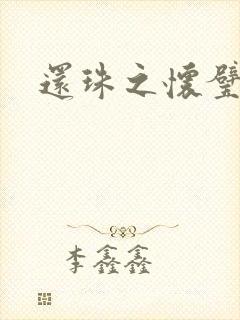 還珠之懷璧
李鑫鑫